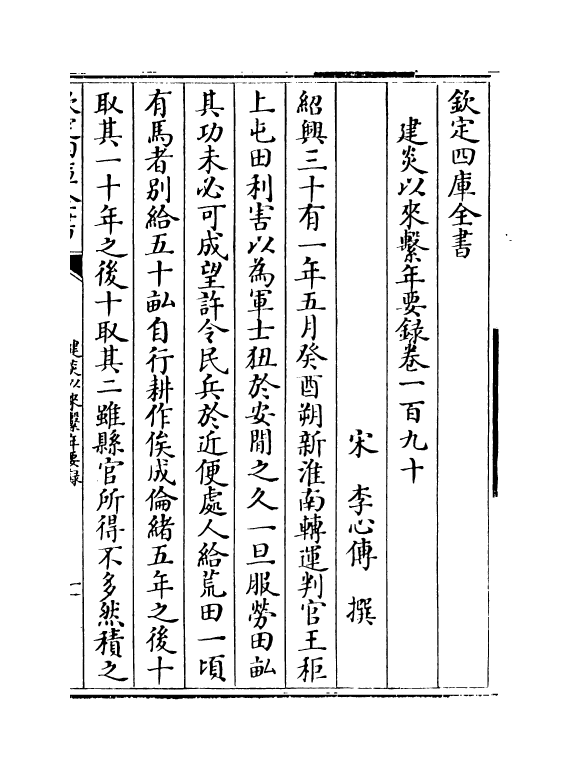 欽定四庫全書
建炎以來繫年要録卷一百九十
宋 李心傳 撰
紹興三十有一年五月癸酉朔新淮南轉運判官王秬
上屯田利害以為軍士狃於安閒之久一旦服勞田畝
其功未必可成望許令民兵於近便處人給荒田一頃
有馬者别給五十畝自行耕作俟成倫緒五年之後十
取其一十年之後十取其二雖縣官所得不多然積之
建炎以來繫年要録